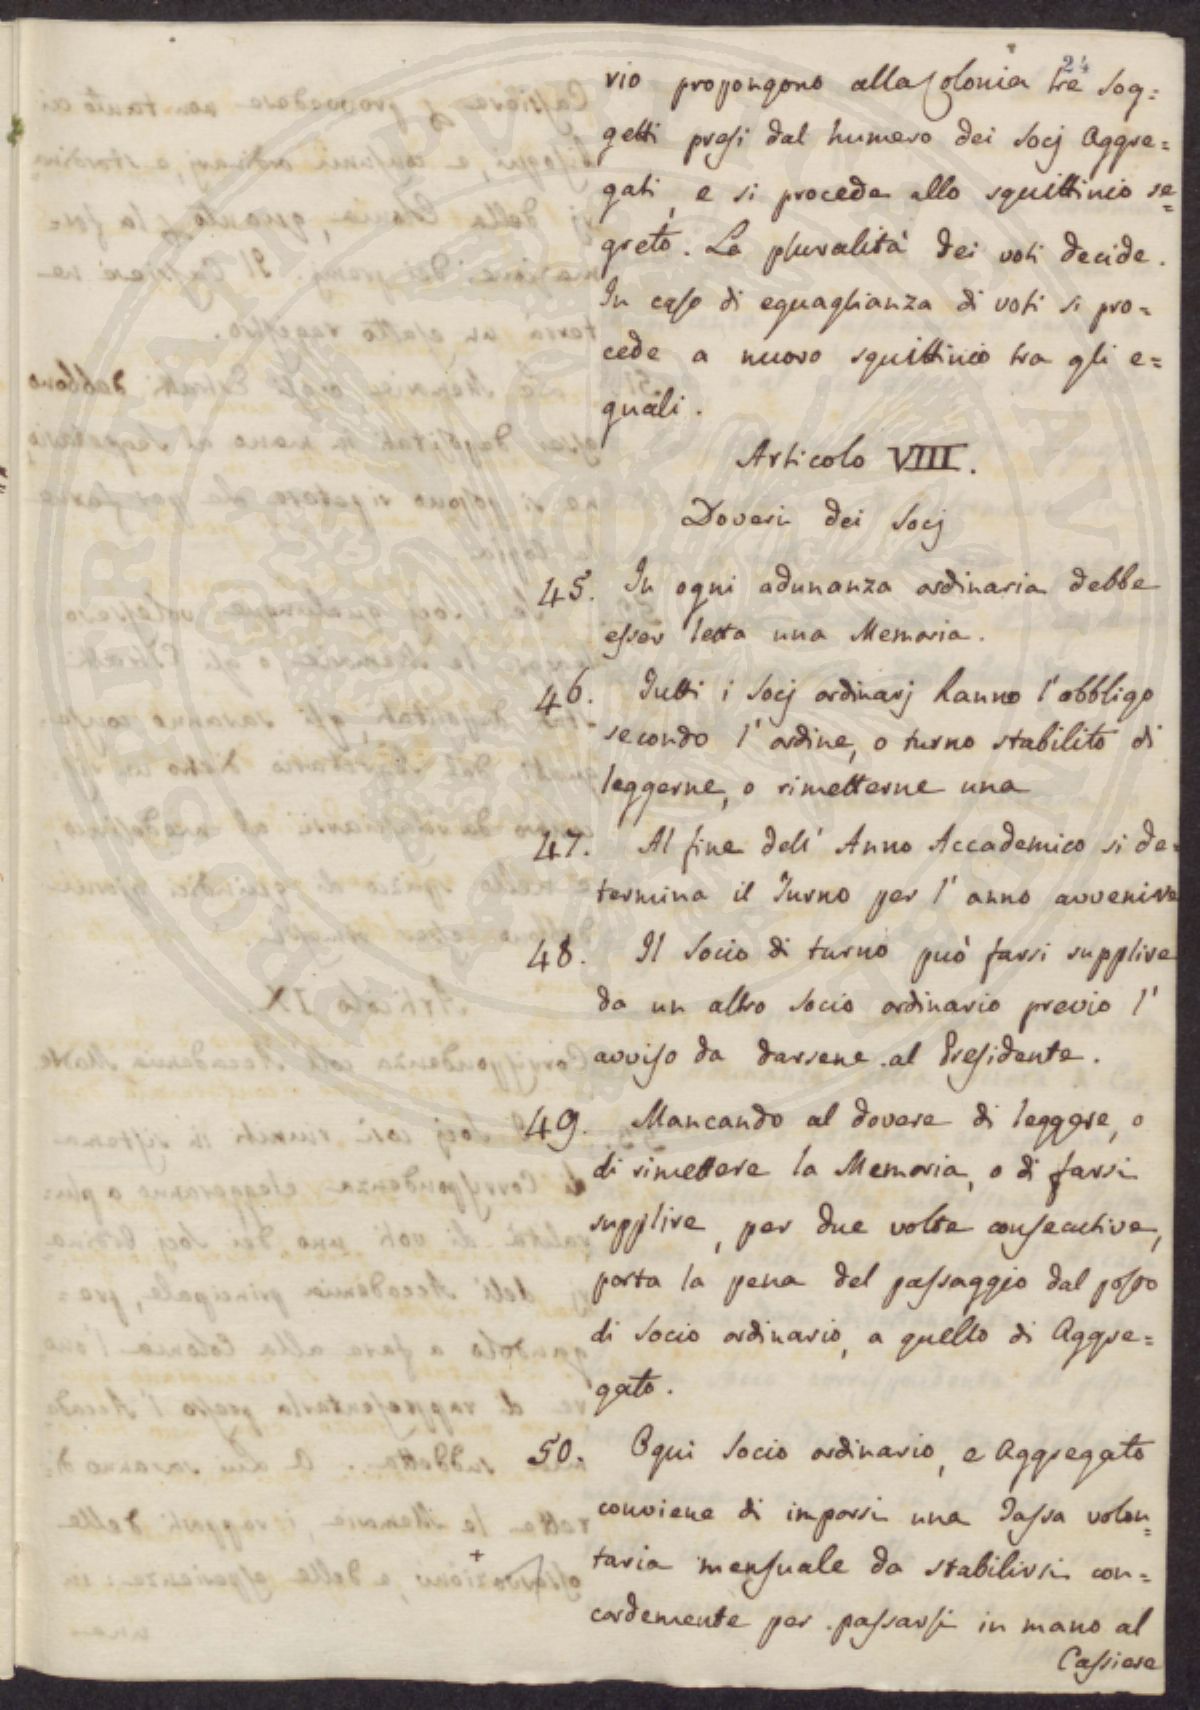 24
vio propongono alla Colonia tre Sog=
getti presi dal numero dei Socj Aggre=
gati, e si procede allo squittinio se=
greto. La pluralità dei voti decide.
In caso di eguaglianza di voti si pro=
cede a nuovo squittinio tra gli e=
guali.
Articolo VIII.
Doveri dei Socj
45. In ogni adunanza ordinaria debbe
esser letta una Memoria.
46. Tutti i Socj ordinarj hanno l'obbligo
secondo l'ordine, o turno stabilito di
leggerne, o rimetterne una
47. Al fine dell'Anno Accademico si de=
termina il Turno per l'anno avvenire
48. Il Socio di turno può farsi supplire
da un altro Socio ordinario previo l'
avviso da darsene al Presidente.
49. Mancando al dovere di leggere, o
di rimettere la Memoria, o di farsi
supplire, per due volte consecutive,
porta la pena del passaggio dal posto
di Socio ordinario, a quello di Aggre=
gato.
50. Ogni Socio ordinario, e Aggregato
conviene di imporsi una Tassa volon=
taria mensuale da stabilirsi con=
cordemente per passarsi in mano al
Cassiere